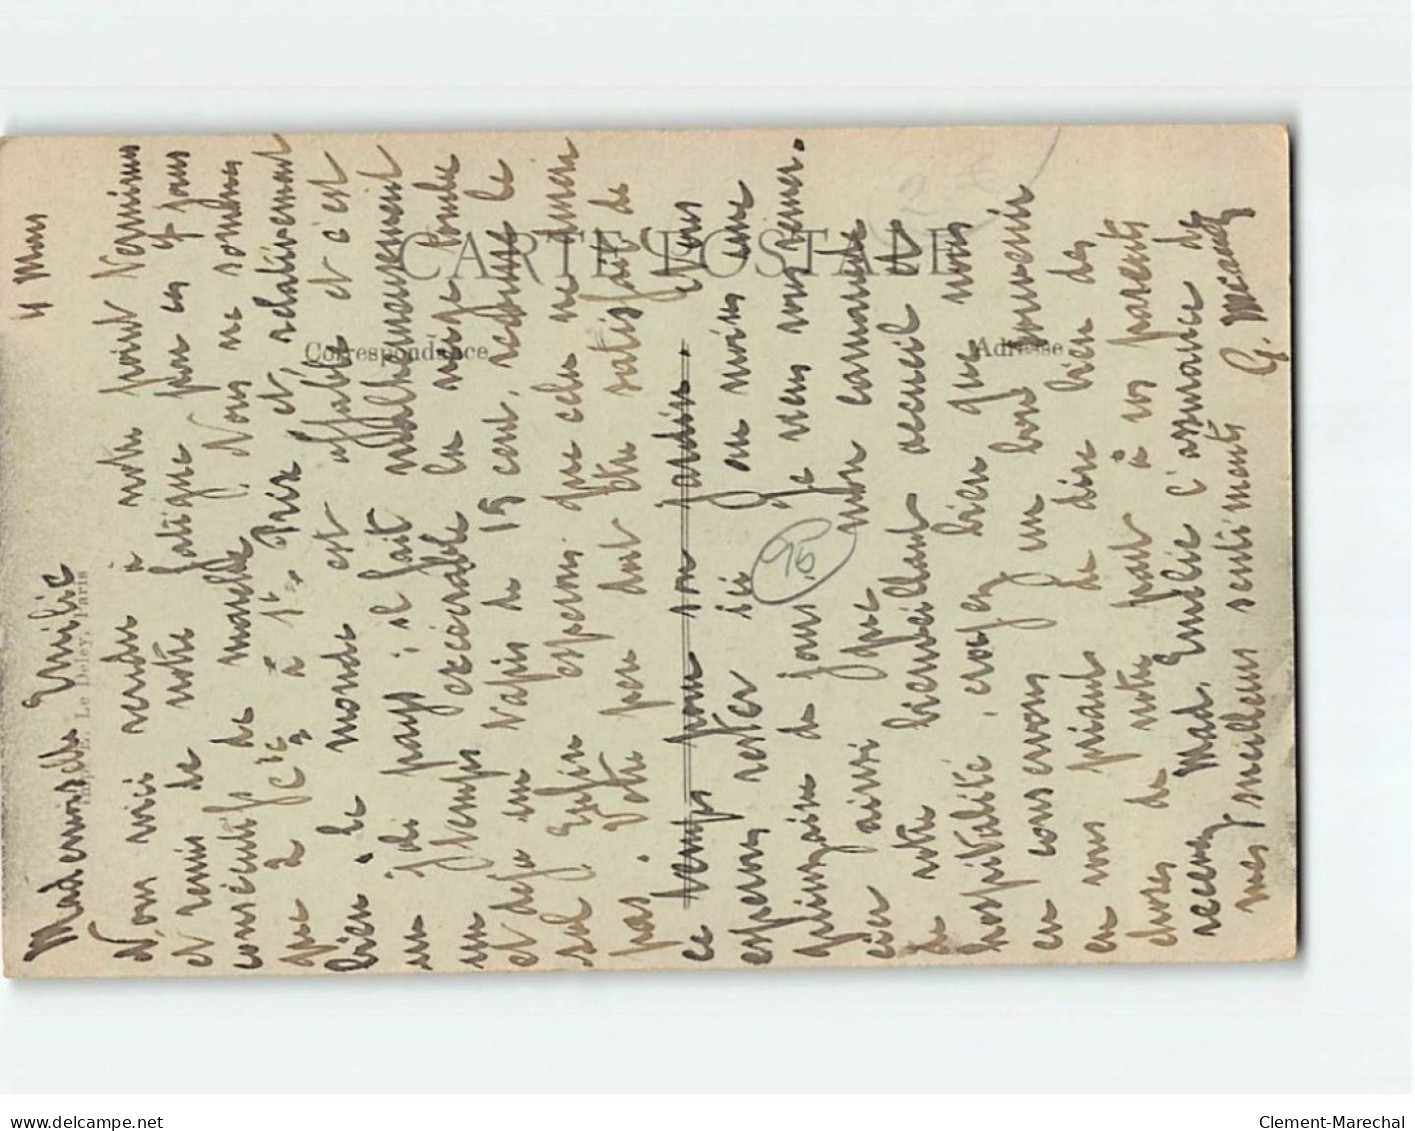 4 Mars
Mademoiselle Emilie
Nous voici rendu à notre point Terminus
et remis de notre fatigue par ces 4 jours
consécutifs de marche. Nous ne sombres
que 2 Cies à St Prix et, relativement
bien. Le monde est affable et c'est
un du pays; il fait malheureusement
un temps exécrable la neige tombe
et déjà un tapis de 15 cent. recouvre le
sol. Enfin espérons que cela ne durera
pas. Votre père doit être satisfait de
ce temps pour son jardin. Nous
espérons rester ici au moins une
quinzaine de jours. Je vous remer-
cie ainsi que mon camarade
de votre bienveillant accueil et
hospitalité. croyez bien que nous
en conservons un bon souvenir
en vous priant de dire bien des
choses de notre part à vos parents
recevez Mad. Emilie l'assurance de
mes meilleurs sentiments
G.
CARTE POSTALE
Correspondance
Adresse
E. Le Deley, Paris
95
2 €
delcampe.net
Clement-Marechal